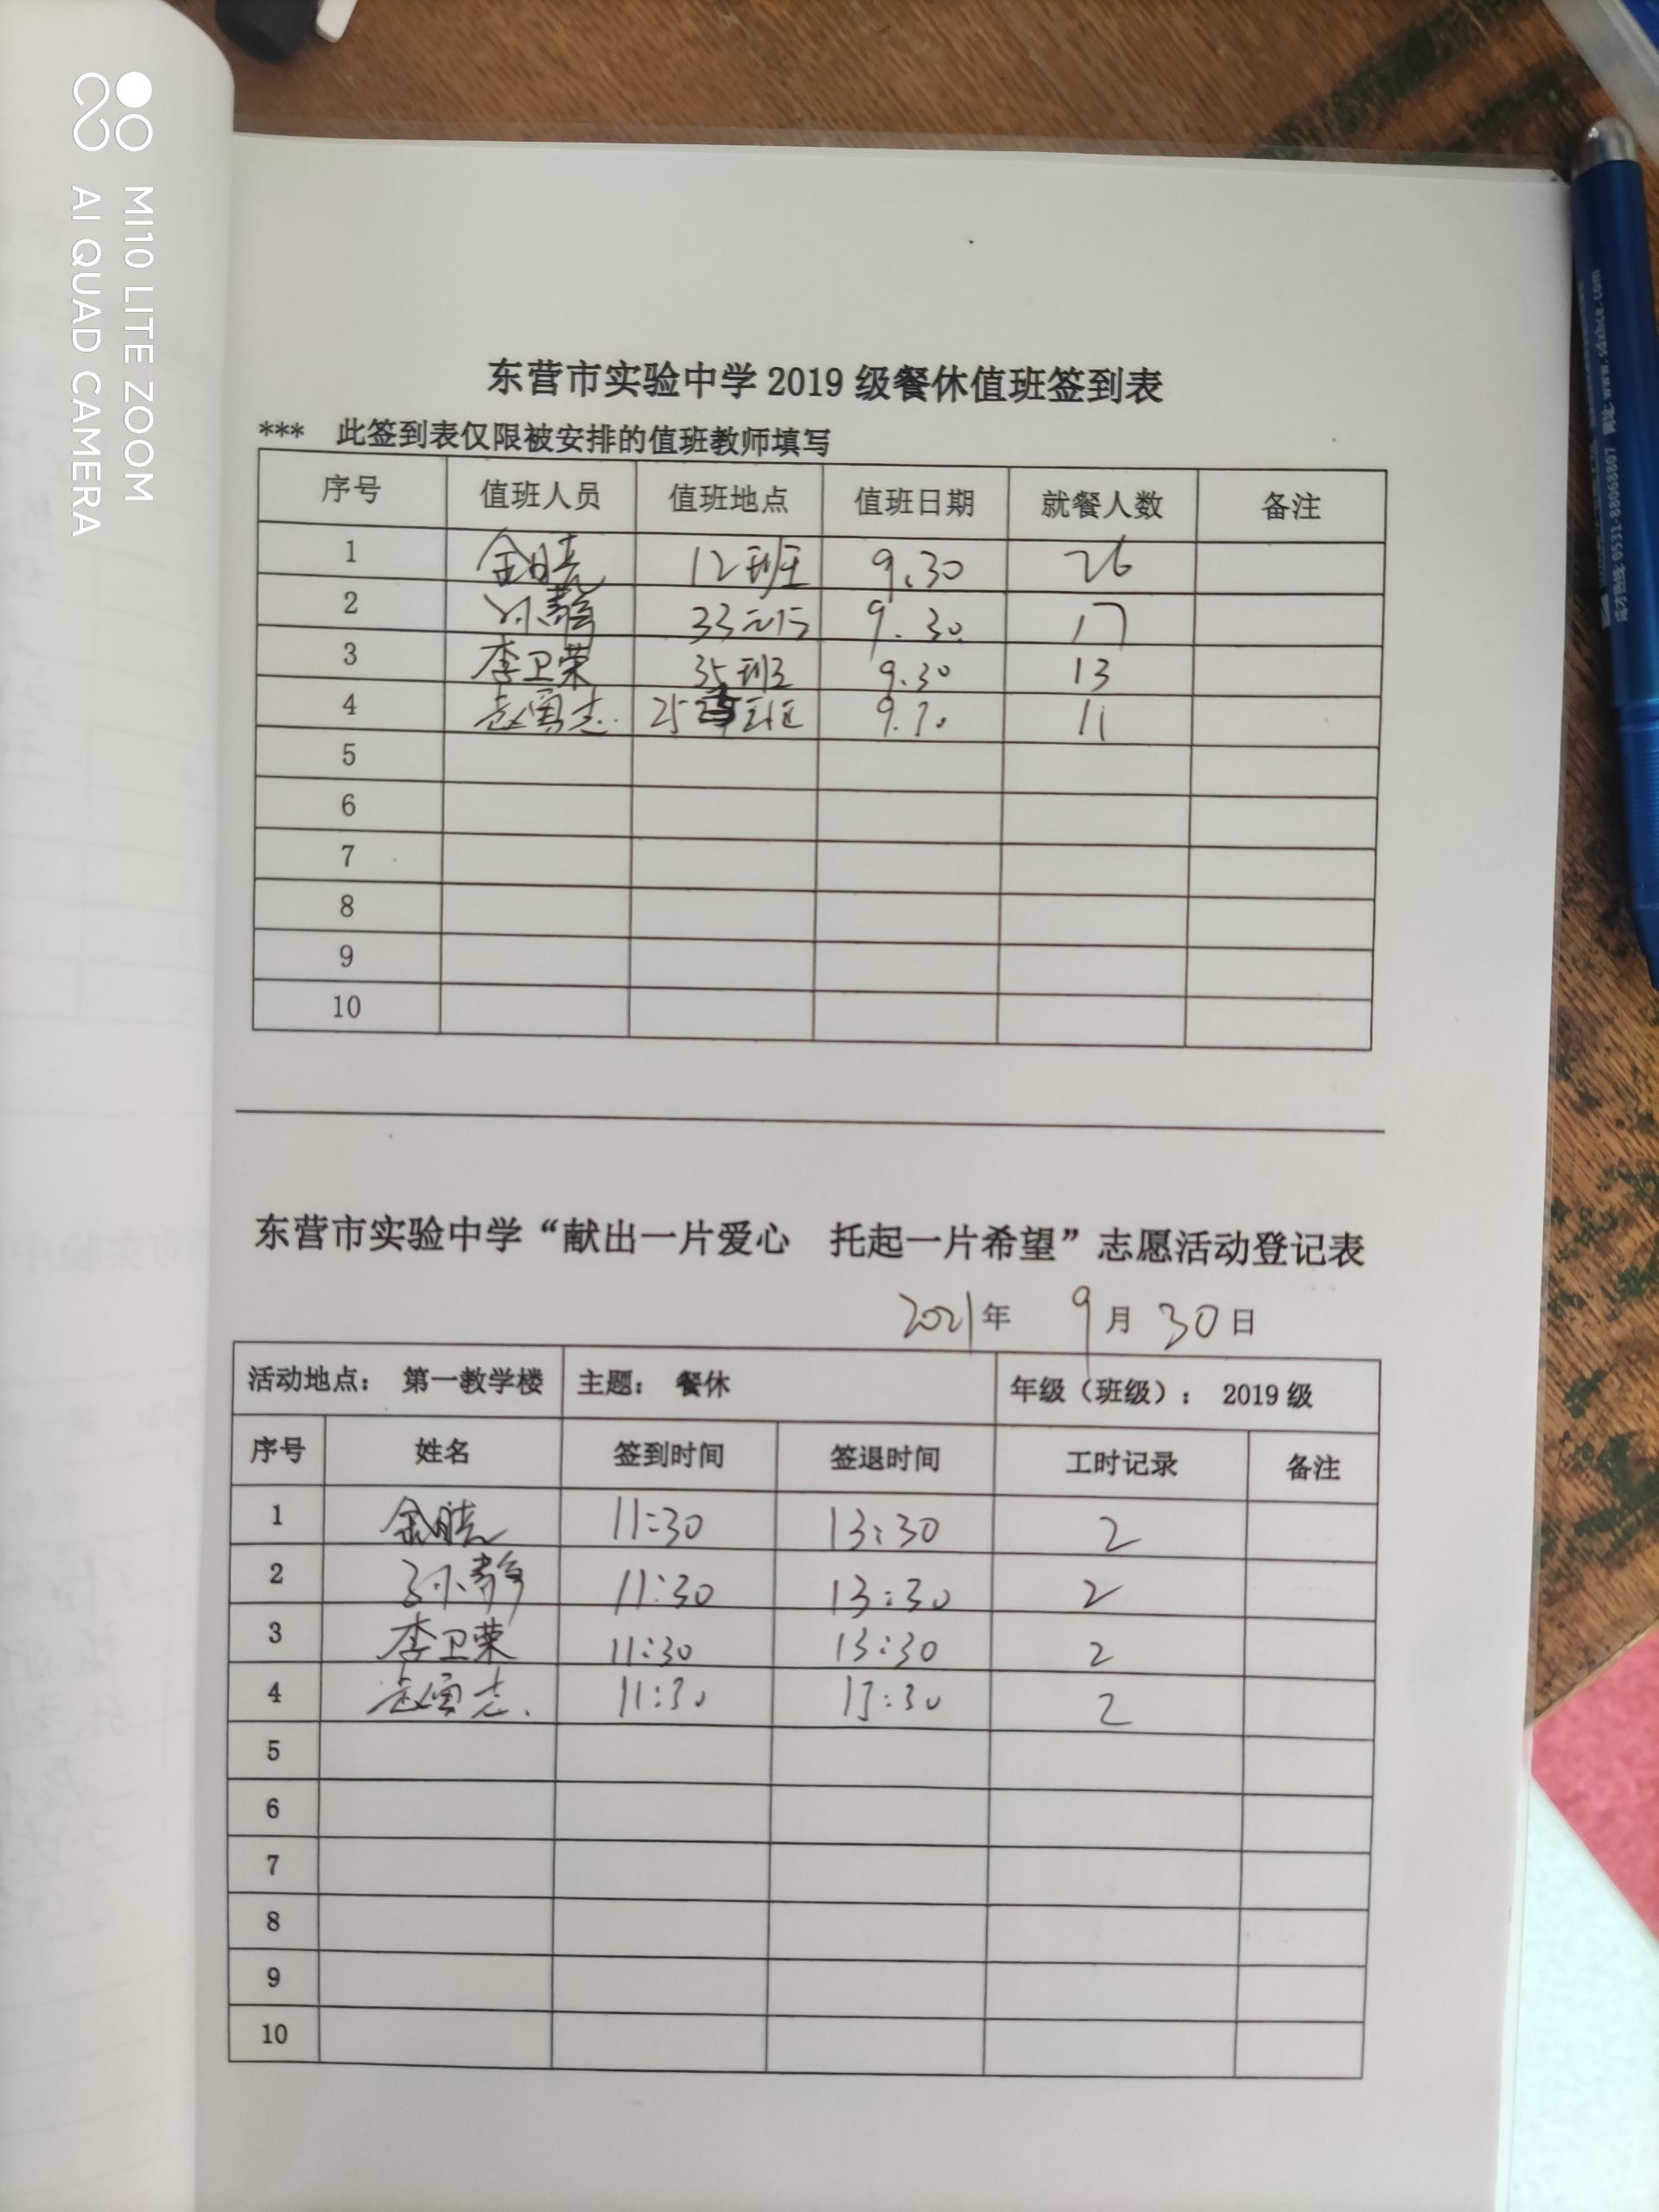 MI10 LITE ZOOM
AI QUAD CAMERA
东营市实验中学 2019 级餐休值班签到表
*** 此签到表仅限被安排的值班教师填写
序号 值班人员 值班地点 值班日期 就餐人数 备注
1 金晓 12班 9.30 26
2 孙静 33班 9.30 17
3 李卫荣 35班 9.30 13
4 赵寅志 25 班 9.30 11
5
6
7
8
9
10
东营市实验中学“献出一片爱心 托起一片希望”志愿活动登记表
2021年 9月 30日
活动地点： 第一教学楼 主题： 餐休 年级（班级）： 2019 级
序号 姓名 签到时间 签退时间 工时记录 备注
1 金晓 11:30 13:30 2
2 孙静 11:30 13:30 2
3 李卫荣 11:30 13:30 2
4 赵寅志 11:30 13:30 2
5
6
7
8
9
10
网址:www.sdxhce.com
0531-88068807